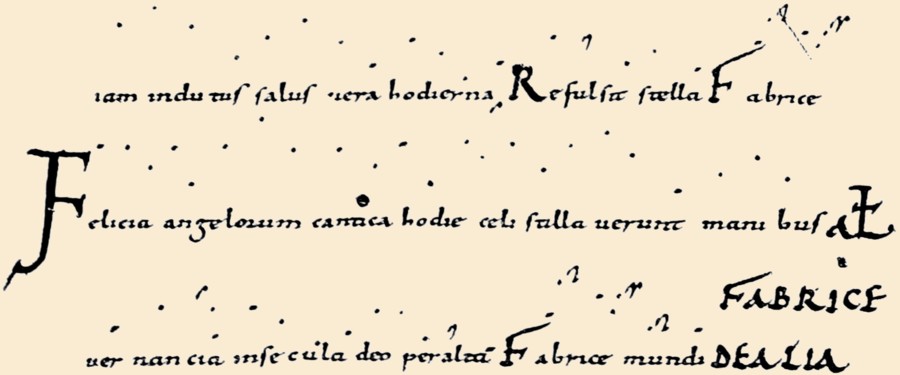 iam indutus salus uera hodierna Refulsit stella Fabrice
Felicia angelorum cantica hodie celi stilla uerunt mani bus
FABRICE
uer nan cia inse cula deo peralta Fabrice mundi DE ALIA